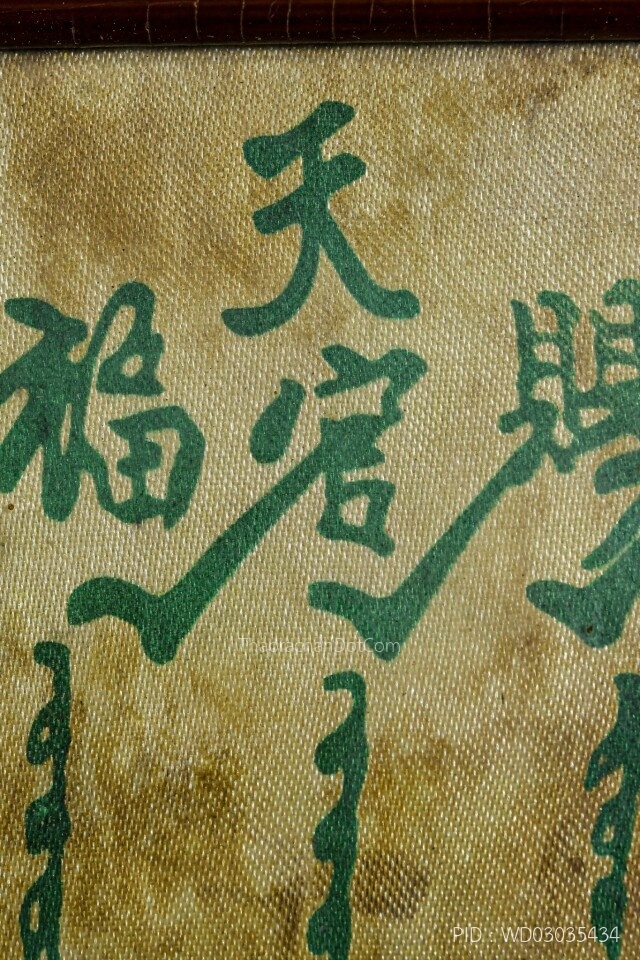 天
福 官 賜
ThapraghanDotCom
PID : WD03035434